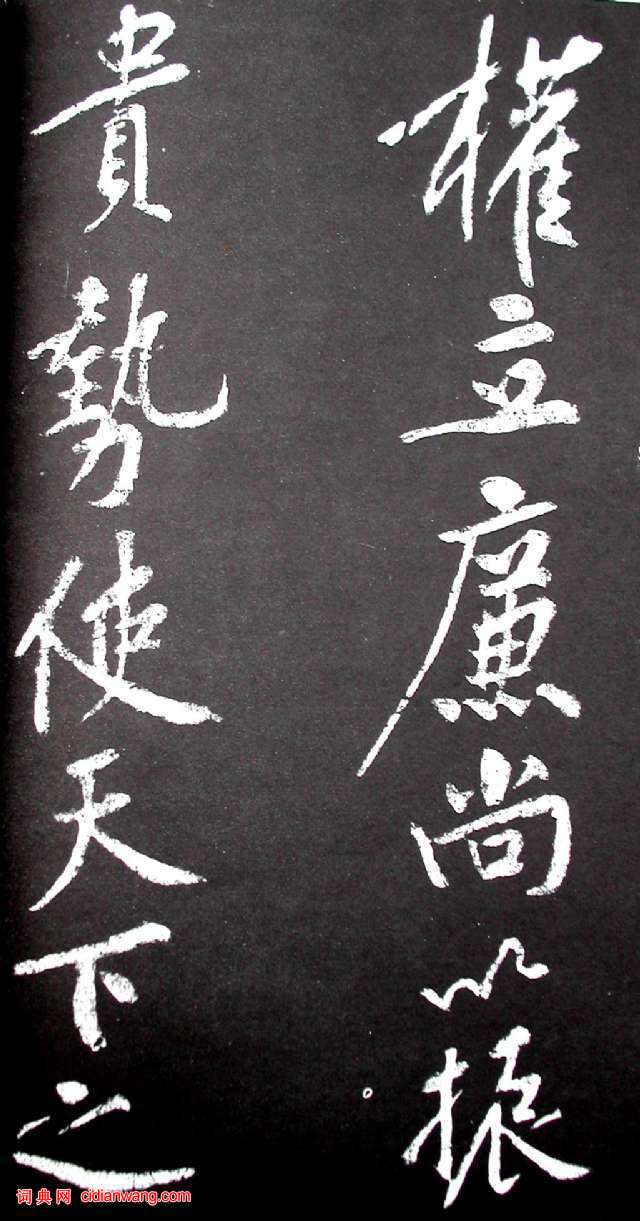 權立廉尚以振
貴勢使天下之
词典网 cidianwang.com